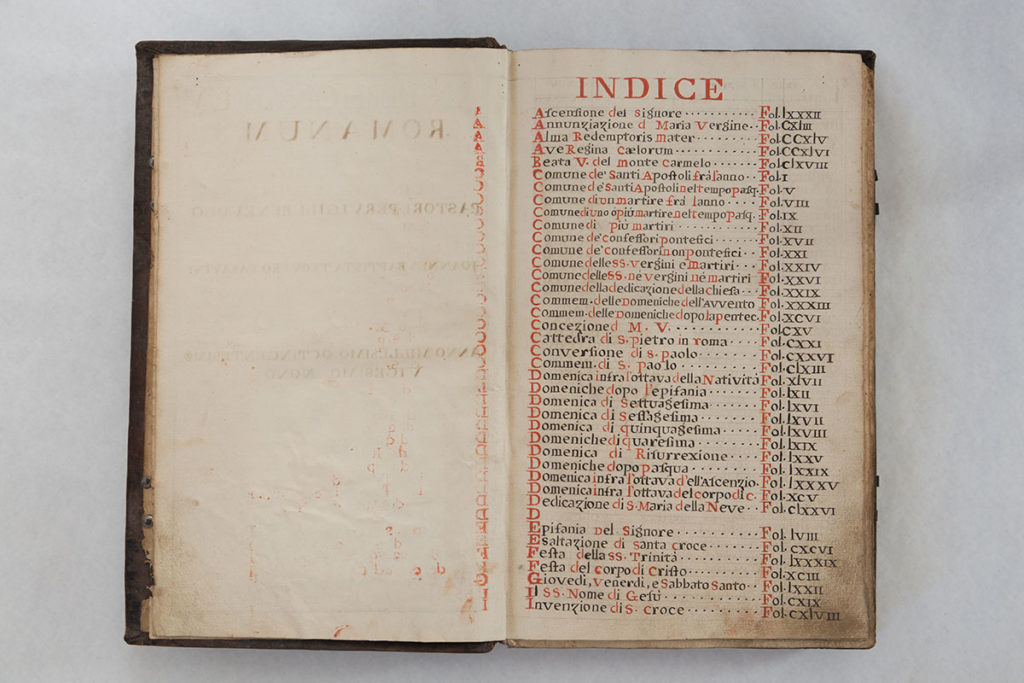 ROMANUM
ANNO MILLESIMO OCTINGENTESIMO
VICESIMO NONO
INDICE
Ascensione del Signore .......... Fol. lXXXII
Annunziazione d Maria Vergine .. Fol. CXlII
Alma Redemptoris mater ........ Fol. CCXlV
Ave Regina Cælorum .......... Fol. CCXlVI
Beata V. del monte Carmelo ..... Fol. ClXVIII
Comune de' Santi Apostoli frà l'anno .. Fol. I
Comune de' Santi Apostoli nel tempo Pasq. Fol. V
Comune di un martire frà l'anno .. Fol. VIII
Comune di uno ò più martire nel tempo Pasq. Fol. IX
Comune di più martiri ......... Fol. XII
Comune de' confessori pontefici .. Fol. XVII
Comune de' confessori non pontefici .. Fol. XXI
Comune delle SS. vergini e martiri .. Fol. XXIV
Comune delle SS. nè vergini nè martiri Fol. XXVI
Comune della dedicazione della chiesa .. Fol. XXIX
Commem. delle Domeniche dell'Avvento Fol. XXXIII
Commem. delle Domeniche dopo la pentec. Fol. XCVI
Concezione d M. V. .......... Fol. CXV
Cattedra di S. pietro in roma ... Fol. CXXI
Conversione di S. paolo ....... Fol. CXXXVI
Commem. di S. paolo ........ Fol. ClXIII
Domenica infra l'ottava della Natività Fol. XlVII
Domeniche dopo l'epifania ...... Fol. lXII
Domenica di Settuagesima ...... Fol. lXVI
Domenica di Sessagesima ....... Fol. lXVII
Domenica di quinquagesima ..... Fol. lXVIII
Domeniche di quaresima ....... Fol. lXIX
Domenica di Risurrexione ...... Fol. lXXV
Domeniche dopo pasqua ........ Fol. lXXIX
Domenica infra l'ottava d'ell'Ascenzio. Fol. lXXXV
Domenica infra l'ottava del corpo di C. Fol. XCV
Dedicazione di S. Maria della Neve .. Fol. ClXXVI
D
Epifania Del Signore .......... Fol. lVIII
Esaltazione di santa croce ....... Fol. CXCVI
Festa della SS. Trinità ......... Fol. lXXXIX
Festa del corpo di Cristo ........ Fol. XCIII
Giovedi, Venerdi, e Sabbato Santo .. Fol. lXXII
Il SS. Nome di Gesù .......... Fol. CXIX
Invenzione di S. croce .......... Fol. CXlVIII